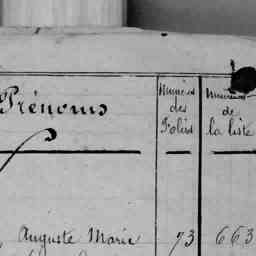 Prénoms
Numéros
des
Folios
Numéros
de
la liste
Auguste Marie 73 663